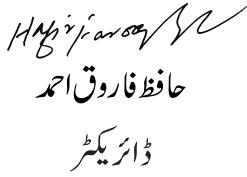 حافظ فاروق احمد
ڈائریکٹر